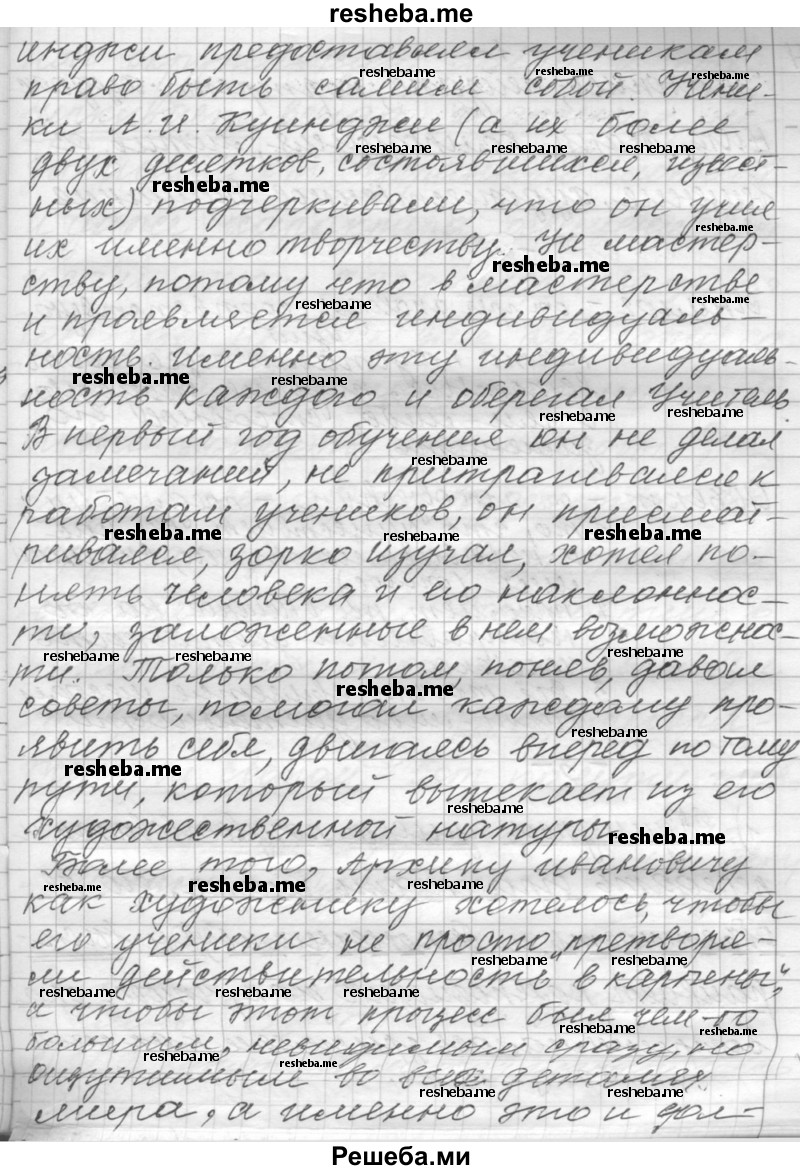 resheba.me
инджи предоставлял ученикам
право быть самим собой. Учени-
ки А.И. Куинджи (а их более
двух десятков, состоявшихся, извест-
ных) подчеркивали, что он учил
их именно творчеству. Не мастер-
ству, потому что в мастерстве
и проявляется индивидуаль-
ность. именно эту индивидуаль-
ность каждого и оберегал Учитель.
В первый год обучения он не делал
замечаний, не притрагивался к
работам учеников, он присмат-
ривался, зорко изучал, хотел по-
нять человека и его наклоннос-
ти, заложенные в нем возможнос-
ти. Только потом, поняв, давал
советы, помогал каждому про-
явить себя, двигаясь вперед по тому
пути, который вытекает из его
художественной натуры.
Более того, Архипу ивановичу
как художнику хотелось, чтобы
его ученики не просто „претворя-
ли действительность в картины“,
а чтобы этот процесс был чем-то
большим, невидимым сразу, но
ощутимым во всех деталях
мира, а именно это и дол-
Решеба.ми